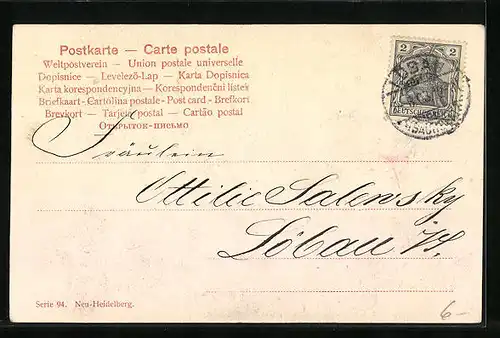 Postkarte — Carte postale
Weltpostverein — Union postale universelle
Dopisnice — Levelező-Lap — Karta Dopisnica
Karta korespondencyjna — Korespondenční listek
Briefkaart - Cartolina postale - Post card - Brefkort
Brevkort — Tarjeta postal — Cartão postal
Открытое-письмо
2 2
DEUTSCHES REICH
LÖBAU
(SACHSEN)
Fräulein
Ottilie Salensky
Löbau i/S.
Serie 94. Neu-Heidelberg.
6-